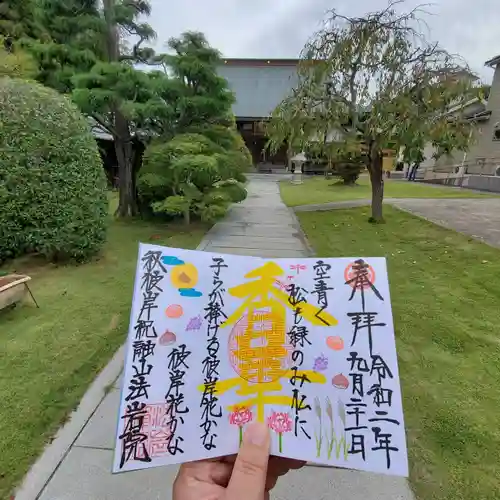 奉拝
令和二年
九月二十二日
空青く
も緑のみ仏に
香華
子らが捧げる彼岸花かな
彼岸花かな
秋彼岸
祥融山法岩院